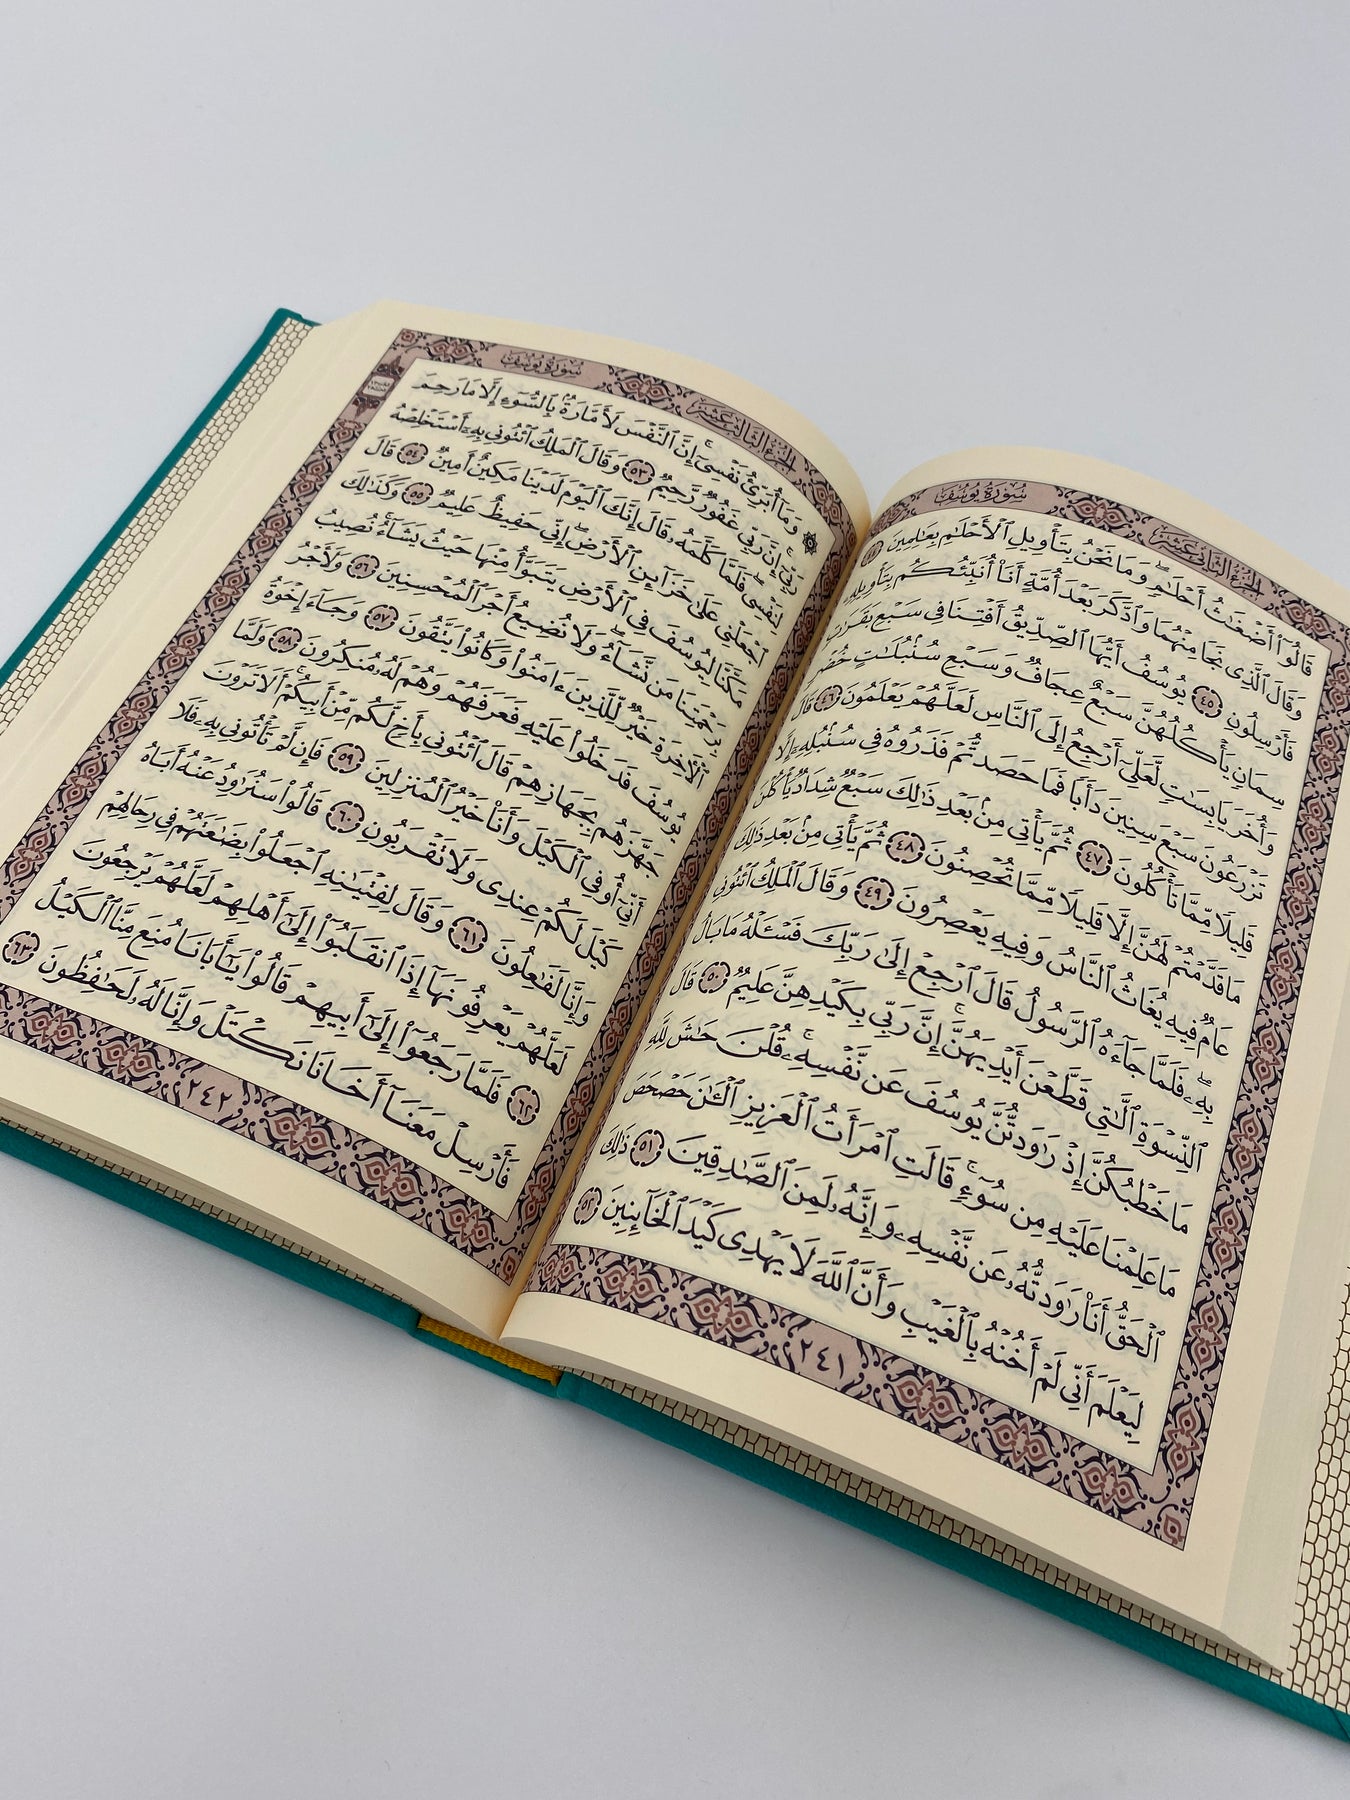 الجُزْءُ الثَّانِي عَشَرَ
سُورَةُ يُوسُفَ
قَالُوٓاْ أَضْغَٰثُ أَحْلَٰمٍۖ وَمَا نَحْنُ بِتَأْوِيلِ ٱلْأَحْلَٰمِ بِعَٰلِمِينَ ٤٤
وَقَالَ ٱلَّذِي نَجَا مِنْهُمَا وَٱدَّكَرَ بَعْدَ أُمَّةٍ أَنَا۠ أُنَبِّئُكُم بِتَأْوِيلِهِۦ
فَأَرْسِلُونِ ٤٥ يُوسُفُ أَيُّهَا ٱلصِّدِّيقُ أَفْتِنَا فِي سَبْعِ بَقَرَٰتٍ
سِمَانٍ يَأْكُلُهُنَّ سَبْعٌ عِجَافٌ وَسَبْعِ سُنۢبُلَٰتٍ خُضْرٍ
وَأُخَرَ يَابِسَٰتٍ لَّعَلِّيٓ أَرْجِعُ إِلَى ٱلنَّاسِ لَعَلَّهُمْ يَعْلَمُونَ ٤٦ قَالَ
تَزْرَعُونَ سَبْعَ سِنِينَ دَأَبًا فَمَا حَصَدتُّمْ فَذَرُوهُ فِي سُنۢبُلِهِۦٓ إِلَّا
قَلِيلًا مِّمَّا تَأْكُلُونَ ٤٧ ثُمَّ يَأْتِي مِنۢ بَعْدِ ذَٰلِكَ سَبْعٌ شِدَادٌ يَأْكُلْنَ
مَا قَدَّمْتُمْ لَهُنَّ إِلَّا قَلِيلًا مِّمَّا تُحْصِنُونَ ٤٨ ثُمَّ يَأْتِي مِنۢ بَعْدِ ذَٰلِكَ
عَامٌ فِيهِ يُغَاثُ ٱلنَّاسُ وَفِيهِ يَعْصِرُونَ ٤٩ وَقَالَ ٱلْمَلِكُ ٱئْتُونِي
بِهِۦۖ فَلَمَّا جَآءَهُ ٱلرَّسُولُ قَالَ ٱرْجِعْ إِلَىٰ رَبِّكَ فَسْـَٔلْهُ مَا بَالُ
ٱلنِّسْوَةِ ٱلَّٰتِي قَطَّعْنَ أَيْدِيَهُنَّۚ إِنَّ رَبِّي بِكَيْدِهِنَّ عَلِيمٌ ٥٠ قَالَ
مَا خَطْبُكُنَّ إِذْ رَٰوَدتُّنَّ يُوسُفَ عَن نَّفْسِهِۦۚ قُلْنَ حَٰشَ لِلَّهِ
مَا عَلِمْنَا عَلَيْهِ مِن سُوٓءٍۚ قَالَتِ ٱمْرَأَتُ ٱلْعَزِيزِ ٱلْـَٰٔنَ حَصْحَصَ
ٱلْحَقُّ أَنَا۠ رَٰوَدتُّهُۥ عَن نَّفْسِهِۦ وَإِنَّهُۥ لَمِنَ ٱلصَّٰدِقِينَ ٥١ ذَٰلِكَ
لِيَعْلَمَ أَنِّي لَمْ أَخُنْهُ بِٱلْغَيْبِ وَأَنَّ ٱللَّهَ لَا يَهْدِي كَيْدَ ٱلْخَآئِنِينَ ٥٢
٢٤١
الجُزْءُ الثَّالِثَ عَشَرَ
سُورَةُ يُوسُفَ
۞ وَمَآ أُبَرِّئُ نَفْسِيٓۚ إِنَّ ٱلنَّفْسَ لَأَمَّارَةٌۢ بِٱلسُّوٓءِ إِلَّا مَا رَحِمَ
رَبِّيٓۚ إِنَّ رَبِّي غَفُورٌ رَّحِيمٌ ٥٣ وَقَالَ ٱلْمَلِكُ ٱئْتُونِي بِهِۦٓ أَسْتَخْلِصْهُ
لِنَفْسِيۖ فَلَمَّا كَلَّمَهُۥ قَالَ إِنَّكَ ٱلْيَوْمَ لَدَيْنَا مَكِينٌ أَمِينٌ ٥٤ قَالَ
ٱجْعَلْنِي عَلَىٰ خَزَآئِنِ ٱلْأَرْضِۖ إِنِّي حَفِيظٌ عَلِيمٌ ٥٥ وَكَذَٰلِكَ
مَكَّنَّا لِيُوسُفَ فِي ٱلْأَرْضِ يَتَبَوَّأُ مِنْهَا حَيْثُ يَشَآءُۚ نُصِيبُ
بِرَحْمَتِنَا مَن نَّشَآءُۖ وَلَا نُضِيعُ أَجْرَ ٱلْمُحْسِنِينَ ٥٦ وَلَأَجْرُ
ٱلْأٓخِرَةِ خَيْرٌ لِّلَّذِينَ ءَامَنُواْ وَكَانُواْ يَتَّقُونَ ٥٧ وَجَآءَ إِخْوَةُ
يُوسُفَ فَدَخَلُواْ عَلَيْهِ فَعَرَفَهُمْ وَهُمْ لَهُۥ مُنكِرُونَ ٥٨ وَلَمَّا
جَهَّزَهُم بِجَهَازِهِمْ قَالَ ٱئْتُونِي بِأَخٍ لَّكُم مِّنْ أَبِيكُمْۚ أَلَا تَرَوْنَ
أَنِّيٓ أُوفِي ٱلْكَيْلَ وَأَنَا۠ خَيْرُ ٱلْمُنزِلِينَ ٥٩ فَإِن لَّمْ تَأْتُونِي بِهِۦ فَلَا
كَيْلَ لَكُمْ عِندِي وَلَا تَقْرَبُونِ ٦٠ قَالُواْ سَنُرَٰوِدُ عَنْهُ أَبَاهُ
وَإِنَّا لَفَٰعِلُونَ ٦١ وَقَالَ لِفِتْيَٰنِهِ ٱجْعَلُواْ بِضَٰعَتَهُمْ فِي رِحَالِهِمْ
لَعَلَّهُمْ يَعْرِفُونَهَآ إِذَا ٱنقَلَبُوٓاْ إِلَىٰٓ أَهْلِهِمْ لَعَلَّهُمْ يَرْجِعُونَ
٦٢ فَلَمَّا رَجَعُوٓاْ إِلَىٰٓ أَبِيهِمْ قَالُواْ يَٰٓأَبَانَا مُنِعَ مِنَّا ٱلْكَيْلُ
فَأَرْسِلْ مَعَنَآ أَخَانَا نَكْتَلْ وَإِنَّا لَهُۥ لَحَٰفِظُونَ ٦٣
٢٤٢